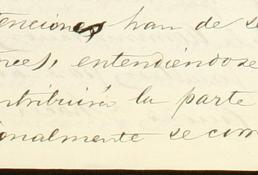 tenciones han de se
rces, entendiéndose
ntribuirá la parte
ionalmente se com